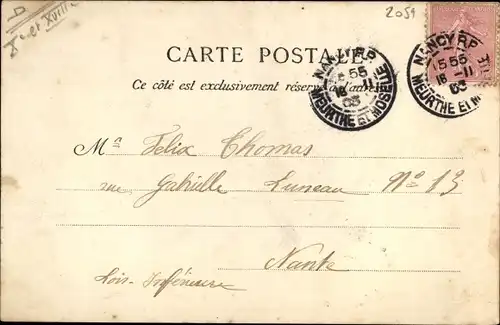 2054
CARTE POSTALE
Ce côté est exclusivement réservé à l'adresse
NANCY RP
15 55
16 -11
03
MEURTHE ET MOSELLE
NANCY RP
15 55
16 -11
03
MEURTHE ET MOSELLE
Mr Felix Thomas
rue Gabrielle Luneau No 13
Nante
Loir-Inférieure